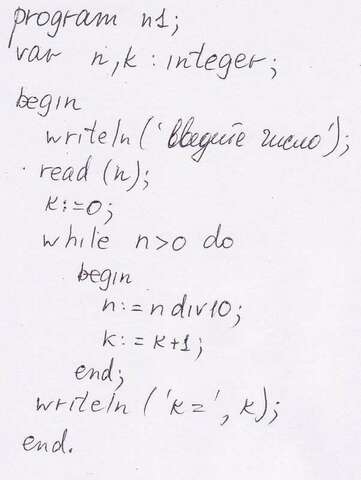 program n1;
var n,k : integer;
begin
writeln('введите число');
read (n);
k:=0;
while n>0 do
begin
n:= n div 10;
k:= k+1;
end;
writeln ('k=', k);
end.